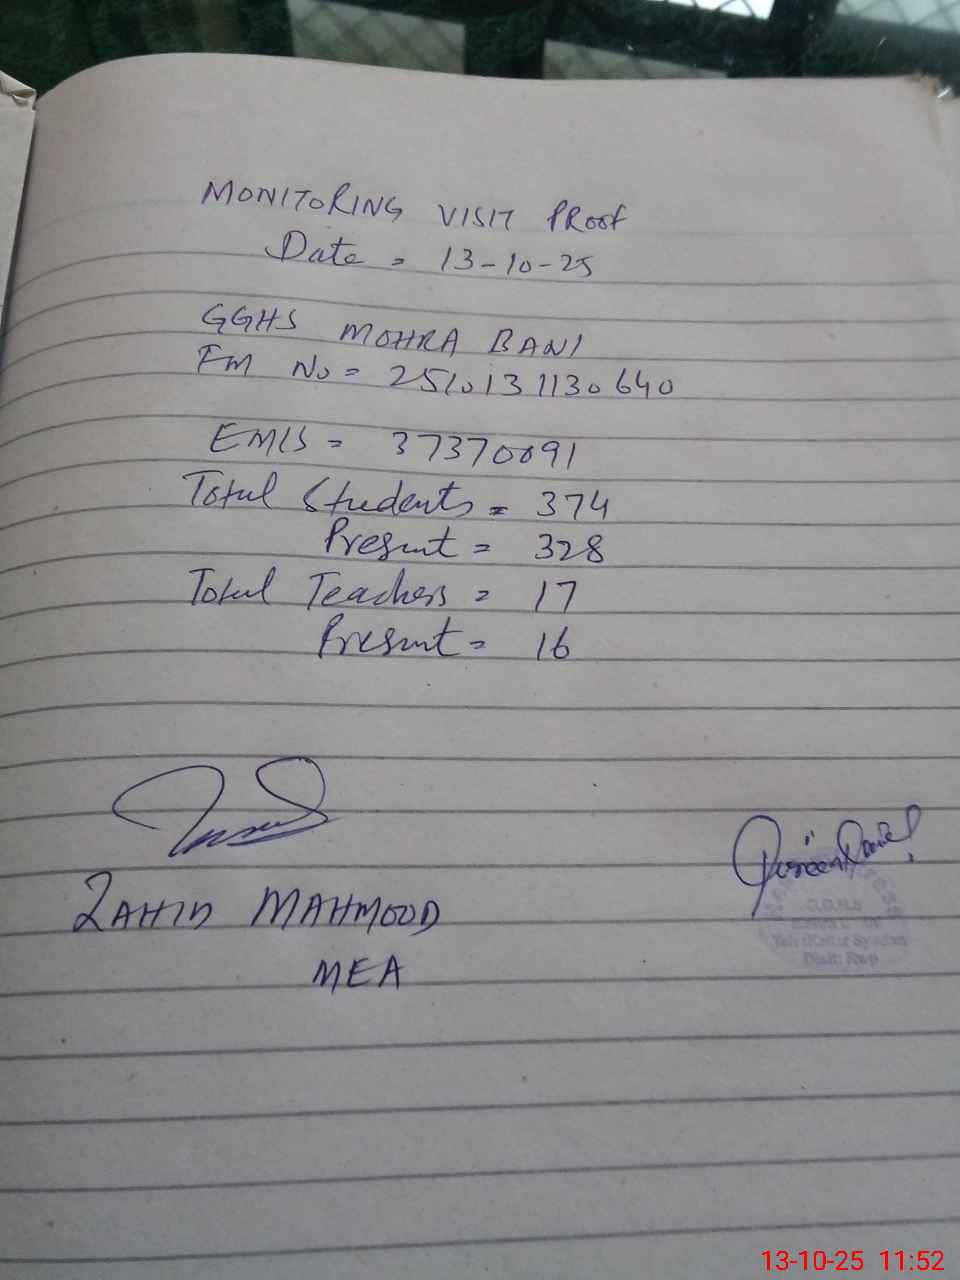 MONITORING VISIT PROOF
Date = 13-10-25
GGHS MOHRA BANI
FM No = 2510131130640
EMIS = 37370091
Total Students = 374
Present = 328
Total Teachers = 17
Present = 16
ZAHID MAHMOOD
MEA
Distt: Rwp
13-10-25 11:52